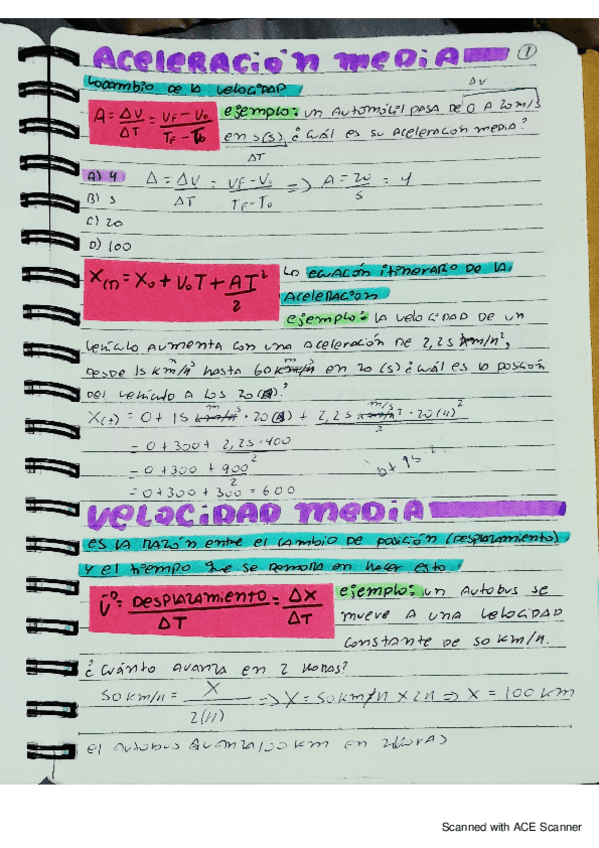 ACELERACIÓN MEDIA ①
LO CAMBIO DE LA VELOCIDAD
ΔV
A = ΔV/ΔT = VF - V0/TF - T0 ejemplo: un AUTOMÓVIL PASA DE 0 A 20 m/s
en 5(s), ¿cuál es su ACELERACIÓN MEDIA?
ΔT
A) 4 A = ΔV/ΔT = VF - V0/TF - T0 => A = 20/5 = 4
B) 5
C) 20
D) 100
X(T) = X0 + V0T + AT²/2 LA ECUACIÓN ITINERARIO DE LA
ACELERACIÓN
ejemplo: LA VELOCIDAD DE UN
VEHÍCULO AUMENTA CON UNA ACELERACIÓN DE 2,25 km/h²,
DESDE 15 km/h hasta 60 km/h en 20 (s) ¿cuál es la posición
del vehículo A LOS 20(s)?
X(T) = 0 + 15 m/s · 20(s) + 2,25 m/s² · 20(s)²/2
= 0 + 300 + 2,25 · 400/2
= 0 + 300 + 900/2
= 0 + 300 + 300 = 600
VELOCIDAD MEDIA
ES LA RAZÓN entre el CAMBIO DE POSICIÓN (DESPLAZAMIENTO)
y el tiempo que se demora en hacer esto
V = DESPLAZAMIENTO/ΔT = ΔX/ΔT ejemplo: un AUTOBUS se
mueve A UNA VELOCIDAD
CONSTANTE DE 50 km/h.
¿CUÁNTO AVANZA en 2 HORAS?
50 km/h = X/2(h) => X = 50 km/h x 2h => X = 100 km
el AUTOBUS AVANZA 100 km en 2 HORAS
Scanned with ACE Scanner